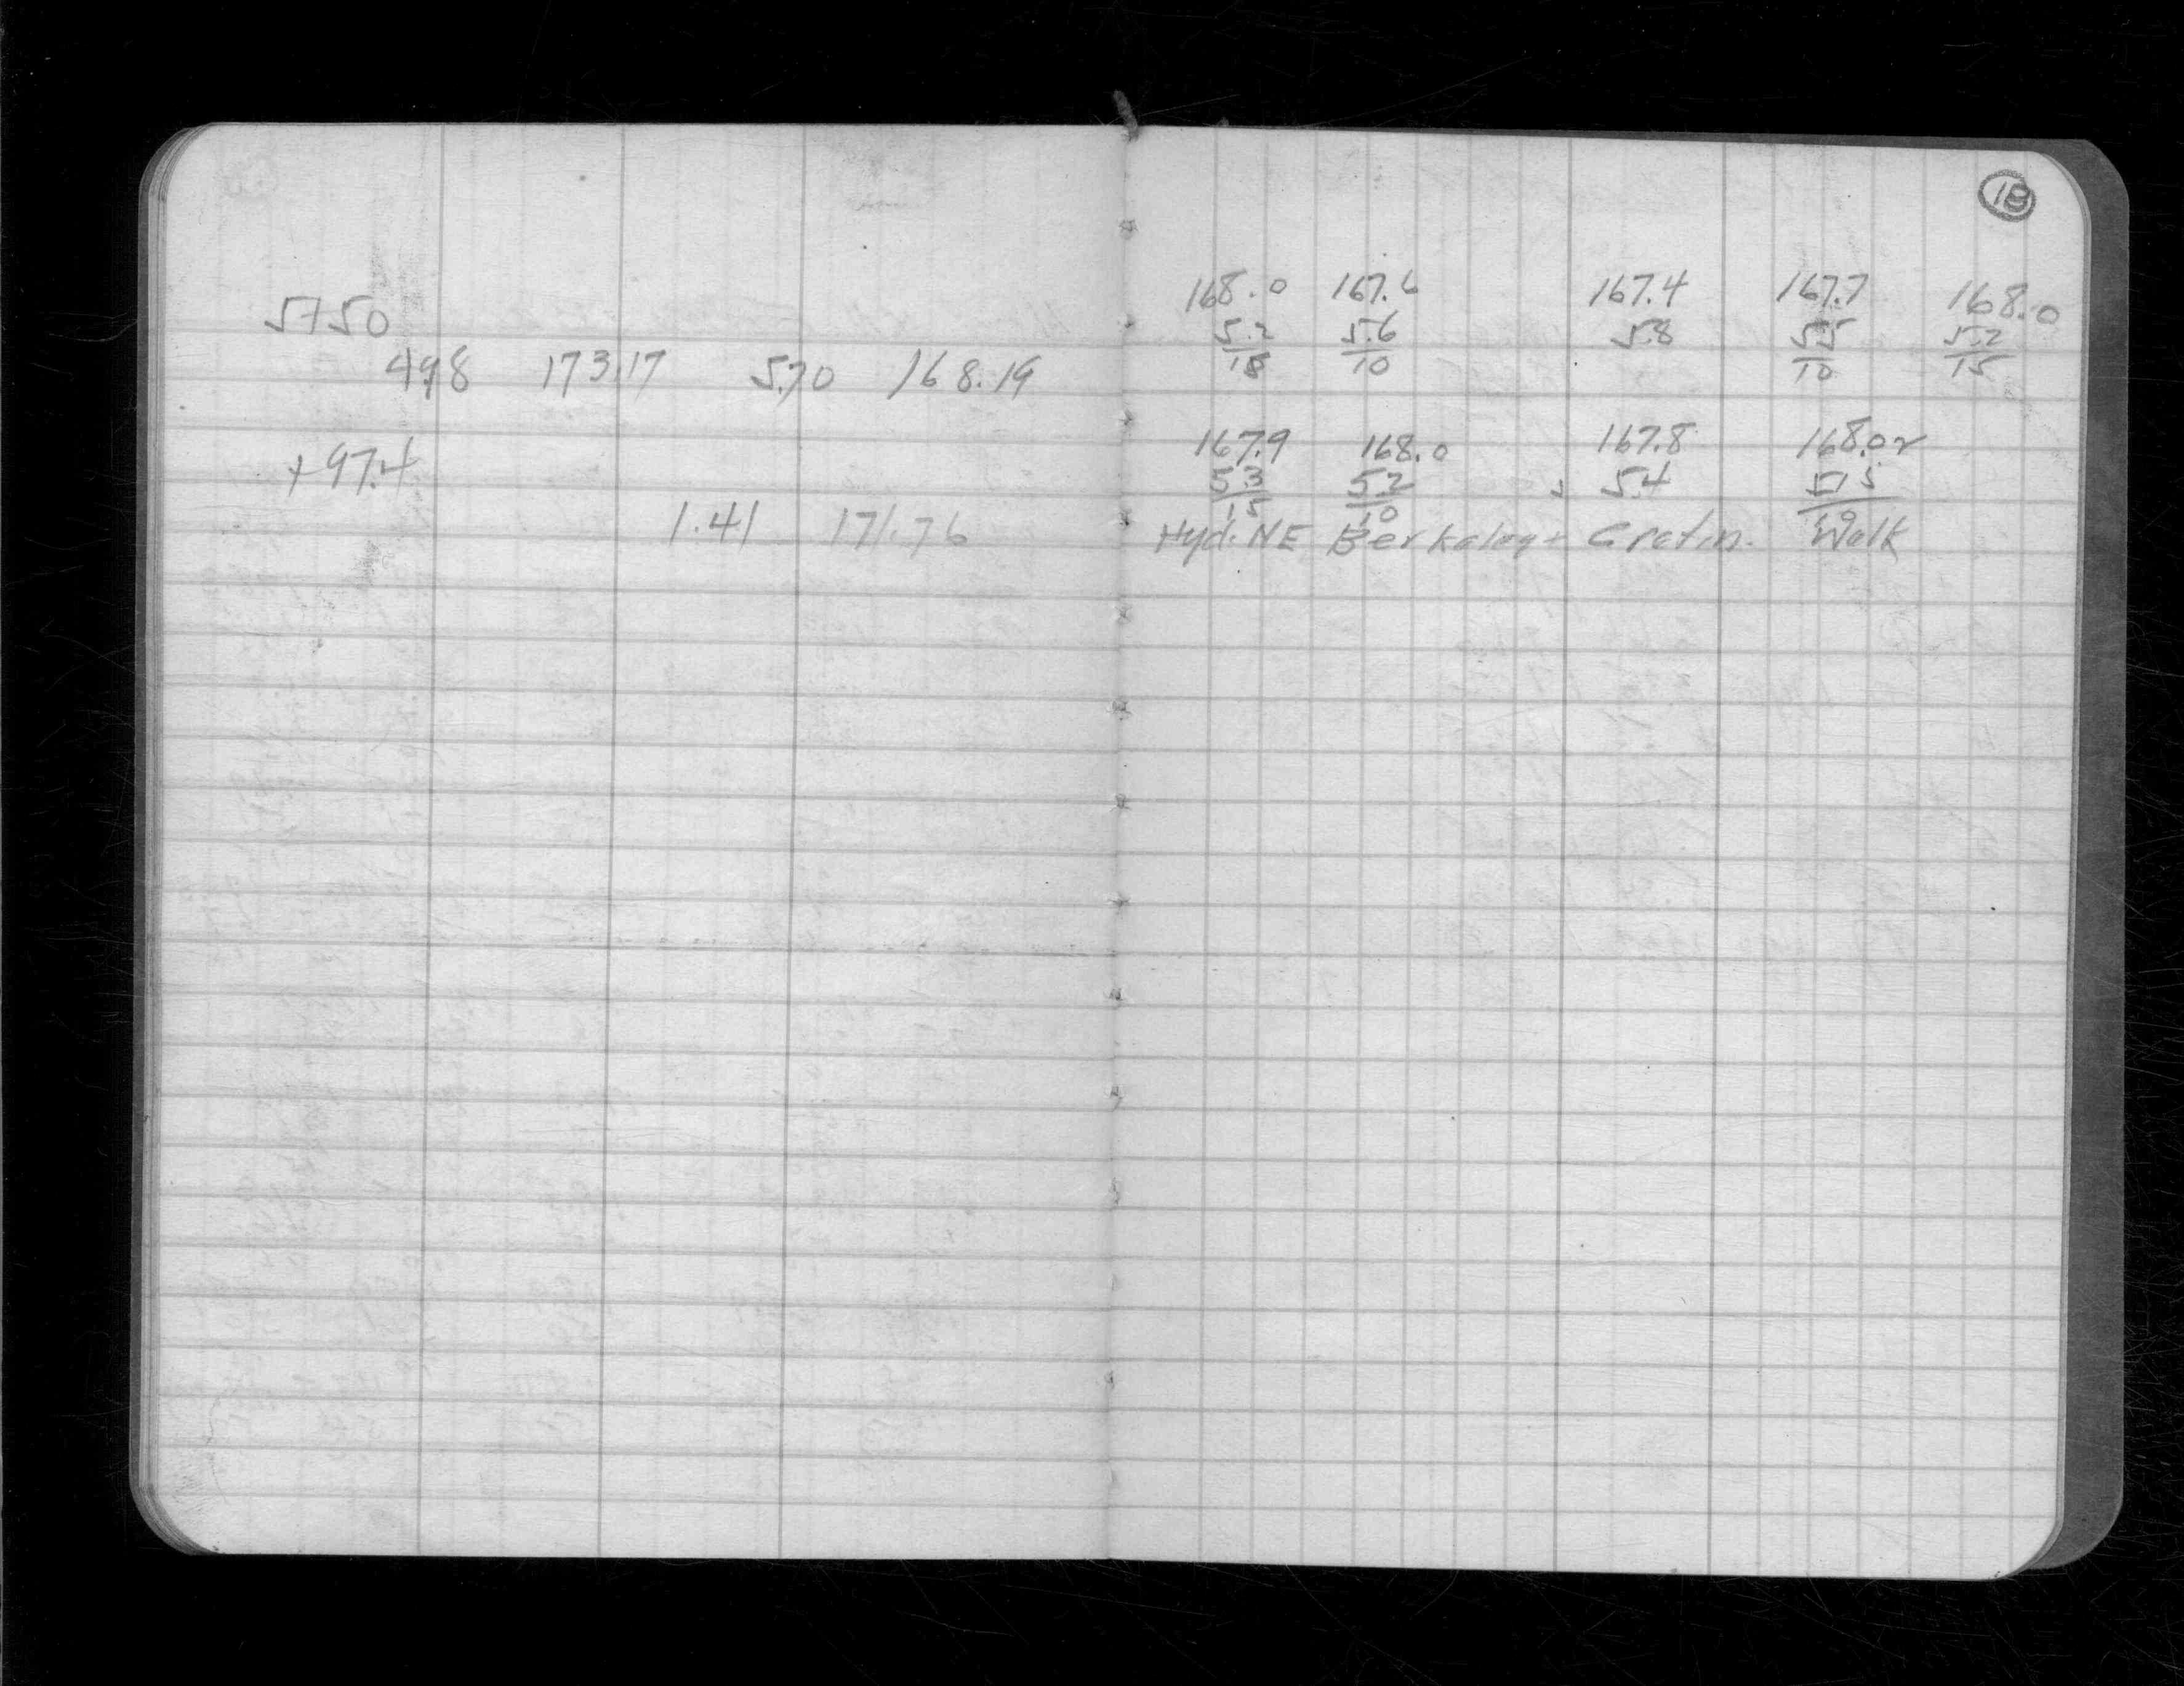 1B
5+50
4.98 173.17 5.70 168.19
+97.4
1.41 171.76
168.0 167.6 167.4 167.7 168.0
5.2 5.6 5.8 5.5 5.2
18 10 10 15
167.9 168.0 167.8 168.02
5.3 5.2 5.4 5.15
15 10 10
Hyd. NE Cretin. Walk